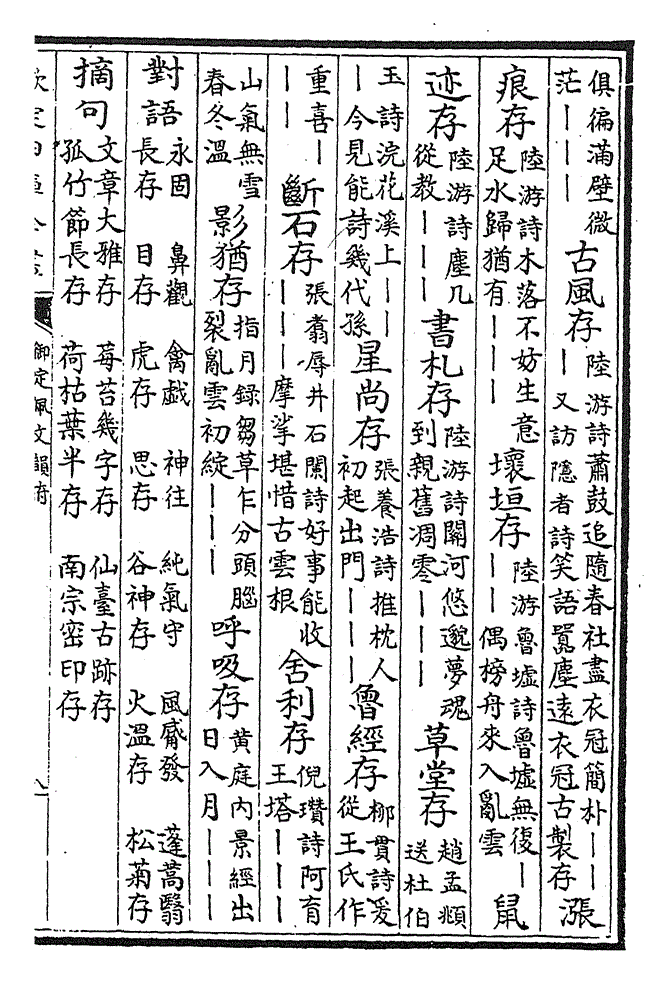 俱徧滿壁微茫丨丨丨古風存陸游詩蕭鼓追隨春社盡衣冠簡朴丨丨丨又訪隱者詩笑語囂塵遠衣冠古製存漲
痕存陸游詩木落不妨生意足水歸猶有丨丨丨壞垣存陸游魯墟詩魯墟無復丨丨丨偶榜舟來入亂雲鼠
迹存陸游詩塵几從教丨丨丨書札存陸游詩關河悠邈夢魂到親舊凋零丨丨丨草堂存趙孟頫送杜伯
玉詩浣花溪上丨丨丨今見能詩幾代孫星尚存張養浩詩推枕人初起出門丨丨丨魯經存柳貫詩爰從王氏作
重喜丨丨丨斷石存張翥辱井石闌詩好事能收丨丨丨摩挲堪惜古雲根舍利存倪瓚詩阿育王塔丨丨丨
山氣無雪春冬溫影猶存指月錄芻草乍分頭腦裂亂雲初綻丨丨丨呼吸存黃庭內景經出日入月丨丨丨
對語永固長存 鼻觀目存 禽戯虎存 神往思存 純氣守谷神存 風齋發火溫存 蓬蒿翳松菊存
摘句文章大雅存 孤竹節長存 莓苔幾字存 荷枯葉半存 仙臺古跡存 南宗密印存
欽定四庫全書 御定佩文韻府 八